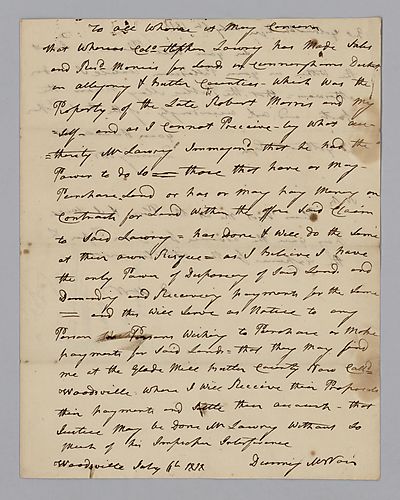 To all Whome it May Concern
that Whereas Colo. Stephen Lowry has Made Sales
and Recd. Monies for Land in Cunninghams District
in allegeny & butler Counties - Which Was the
Property - of the Late Robert Morris and my
=self - and as I Cannot Perceive - by What au=
=thority Mr Lowry that he had the
Power to do so = those that have or May -
Purchase Land or has or may pay Money on
Contracts for Land Within the afore Said Claim
to Said Lowry = has Done & Will do the Same
at their own Risque - as I believe I have
the only Power of Disposeing of Said Land and
Demanding and Receiveing payments for the Same
= and this Will Serve as Notice to any
Person or Persons Wishing to Purchase or Make
payments for Said Lands - that they May find
me at the Glade Mill butler County Now Calld
Woodville Where I Will Receive their Proposals
their payments and Settle their accounts - that
Justice May be done Mr Lowry Without So
Much of his Improper Interfearance
Woodville July 6th 1818 Dunning McNair